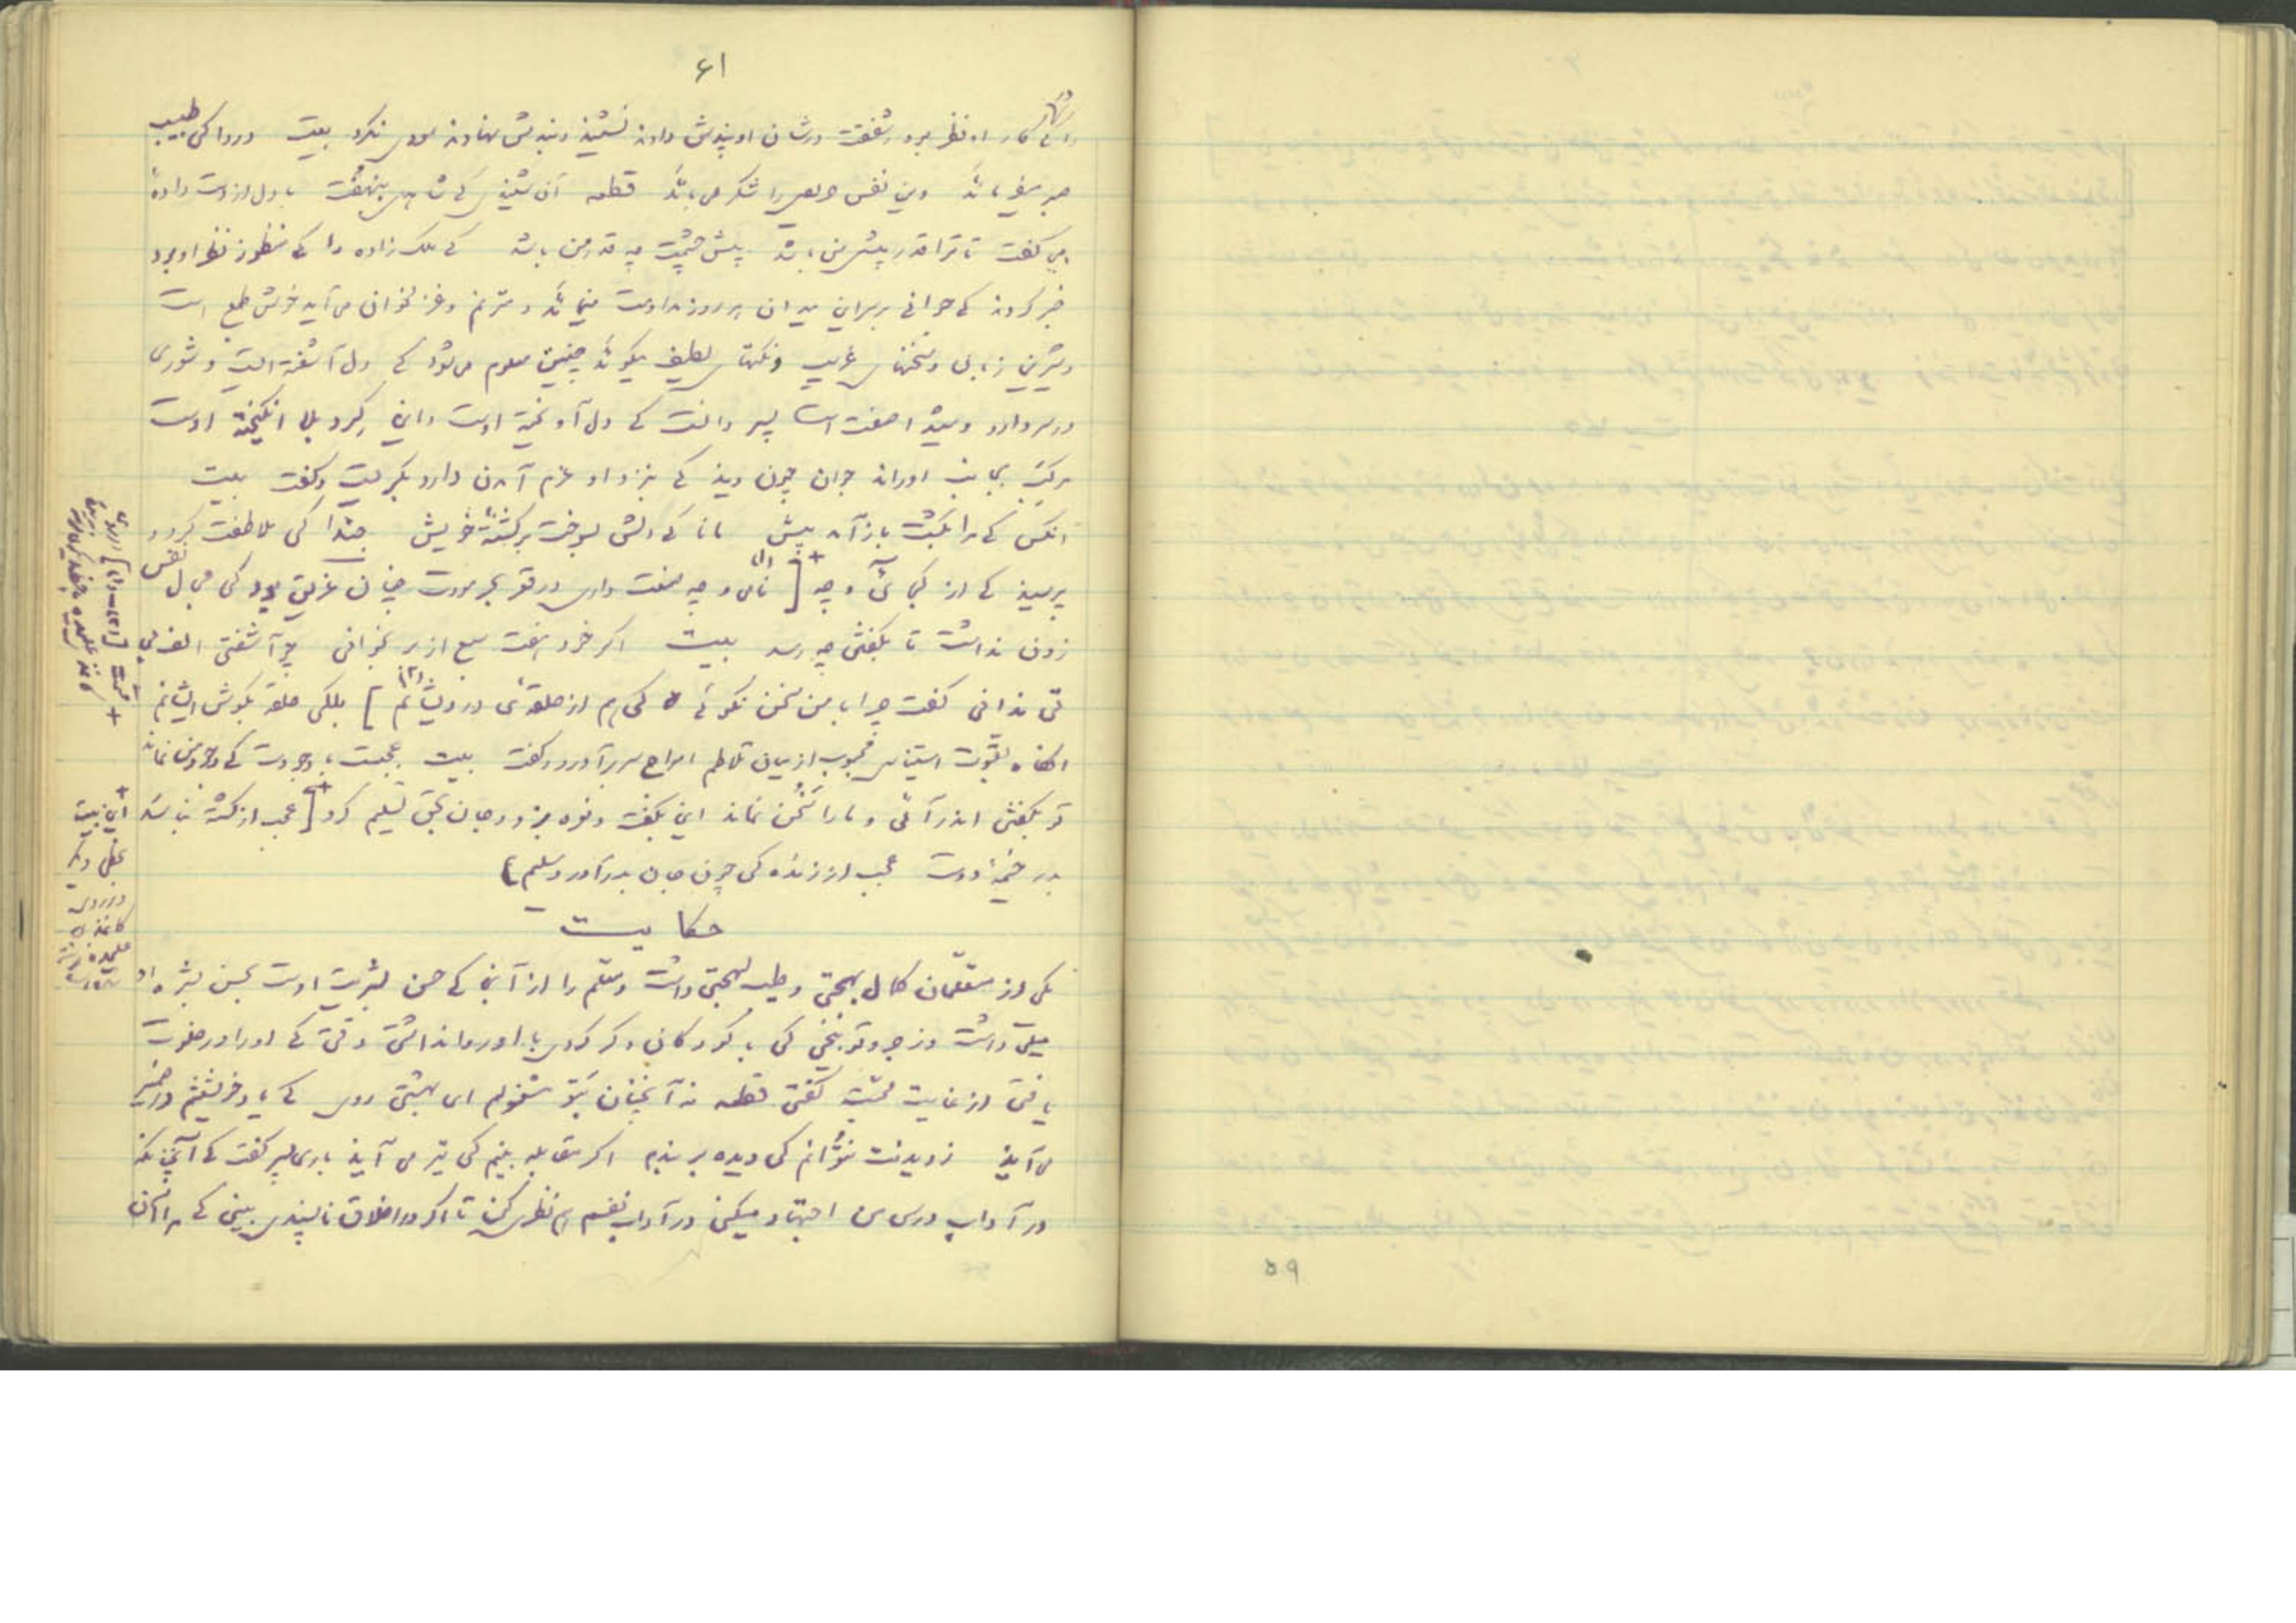 ۶۱
را که کار او نظر بود و شفقت در شان او پندش دادند نشنید و بندش نهادند سودی نکرد بیت دردا کی طبیب
صبر میفرماید وین نفس حریص را شکر می باید قطعه آن شنیدی که شاهدی بنهفت با دل از دست داده
می گفت تا ترا قدر خویشتن باشد پیش چشمت چه قدر من باشد که ملک زاده را که منظور نظر او بود
خبر کردند که جوانی بر سر این میدان هر روز مداومت مینماید و ترنم و غزلخوانی می آید خوش طبع است
و شیرین زبان و سخنهای غریب و نکتهای لطیف میگوید چنین معلوم می شود که دل آشفته است و شوری
در سر دارد و شیدا صفت است پسر دانست که دل آویخته اوست و این گرد بلا انگیخته اوست
مرکب بجانب او راند جوان چون دید که بنزد او عزم آمدن دارد بگریست و گفت بیت
انکس که مرا بکشت باز آمد پیش مانا که دلش بسوخت بر کشته خویش چندا کی ملاطفت کرد و
پرسید که از کجائی و چه [ نامی و چه صنعت داری در قعر بحر مودت چنان غریق بود کی مجال نفس
زدن نداشت تا بگفتن چه رسد بیت اگر خود هفت سبع از بر بخوانی چو آشفتی الف بی
تی ندانی گفت چرا با من سخن نگوئی کی هم از حلقهٔ درویشانم ] بلکی حلقه بگوش ایشانم
انگاه بقوت استیناس محبوب از میان تلاطم امواج سر بر آورد و گفت بیت عجبست با وجودت که وجود من بماند
تو بگفتن اندر آئی و مرا سخن بماند این بگفت و نعره بزد و جان بحق تسلیم کرد [ عجب از کشته نباشد
بدر خیمهٔ دوست عجب از زنده کی چون جان بدر آورد سلیم ]
+ این بیت
بخطی دیگر
در روی
کاغذ
علیحده
حکایت
یکی از متعلمان کمال بهجتی و طیب لهجتی داشت و معلم را از آنجا که حس بشریت است بحسن بشره او
میلی داشت و زجر و توبیخی کی بر کودکان دگر کردی با او روا نداشتی وقتی که او را در خلوت
یافتی از غایت محبت گفتی قطعه نه آنچنان بتو مشغولم ای بهشتی روی که یاد خویشتنم در ضمیر
می آید ز دیدنت نتوانم کی دیده بر بندم اگر مقابله بینم کی تیر می آید باری پسر گفت که آنچنانکه
در آداب درس من اجتهاد میکنی در آداب نفسم هم نظری کن تا اگر در اخلاق ناپسندی بینی که مرا آن
۵۹